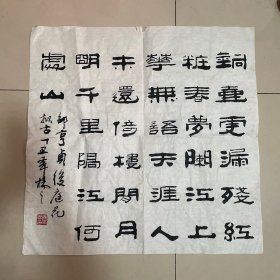 銅壺更漏殘紅
粧春夢闌江上
華無語天涯人
未還倚樓閒月
明千里隔江何
處山
邵亨貞後庭花
擬古丁丑